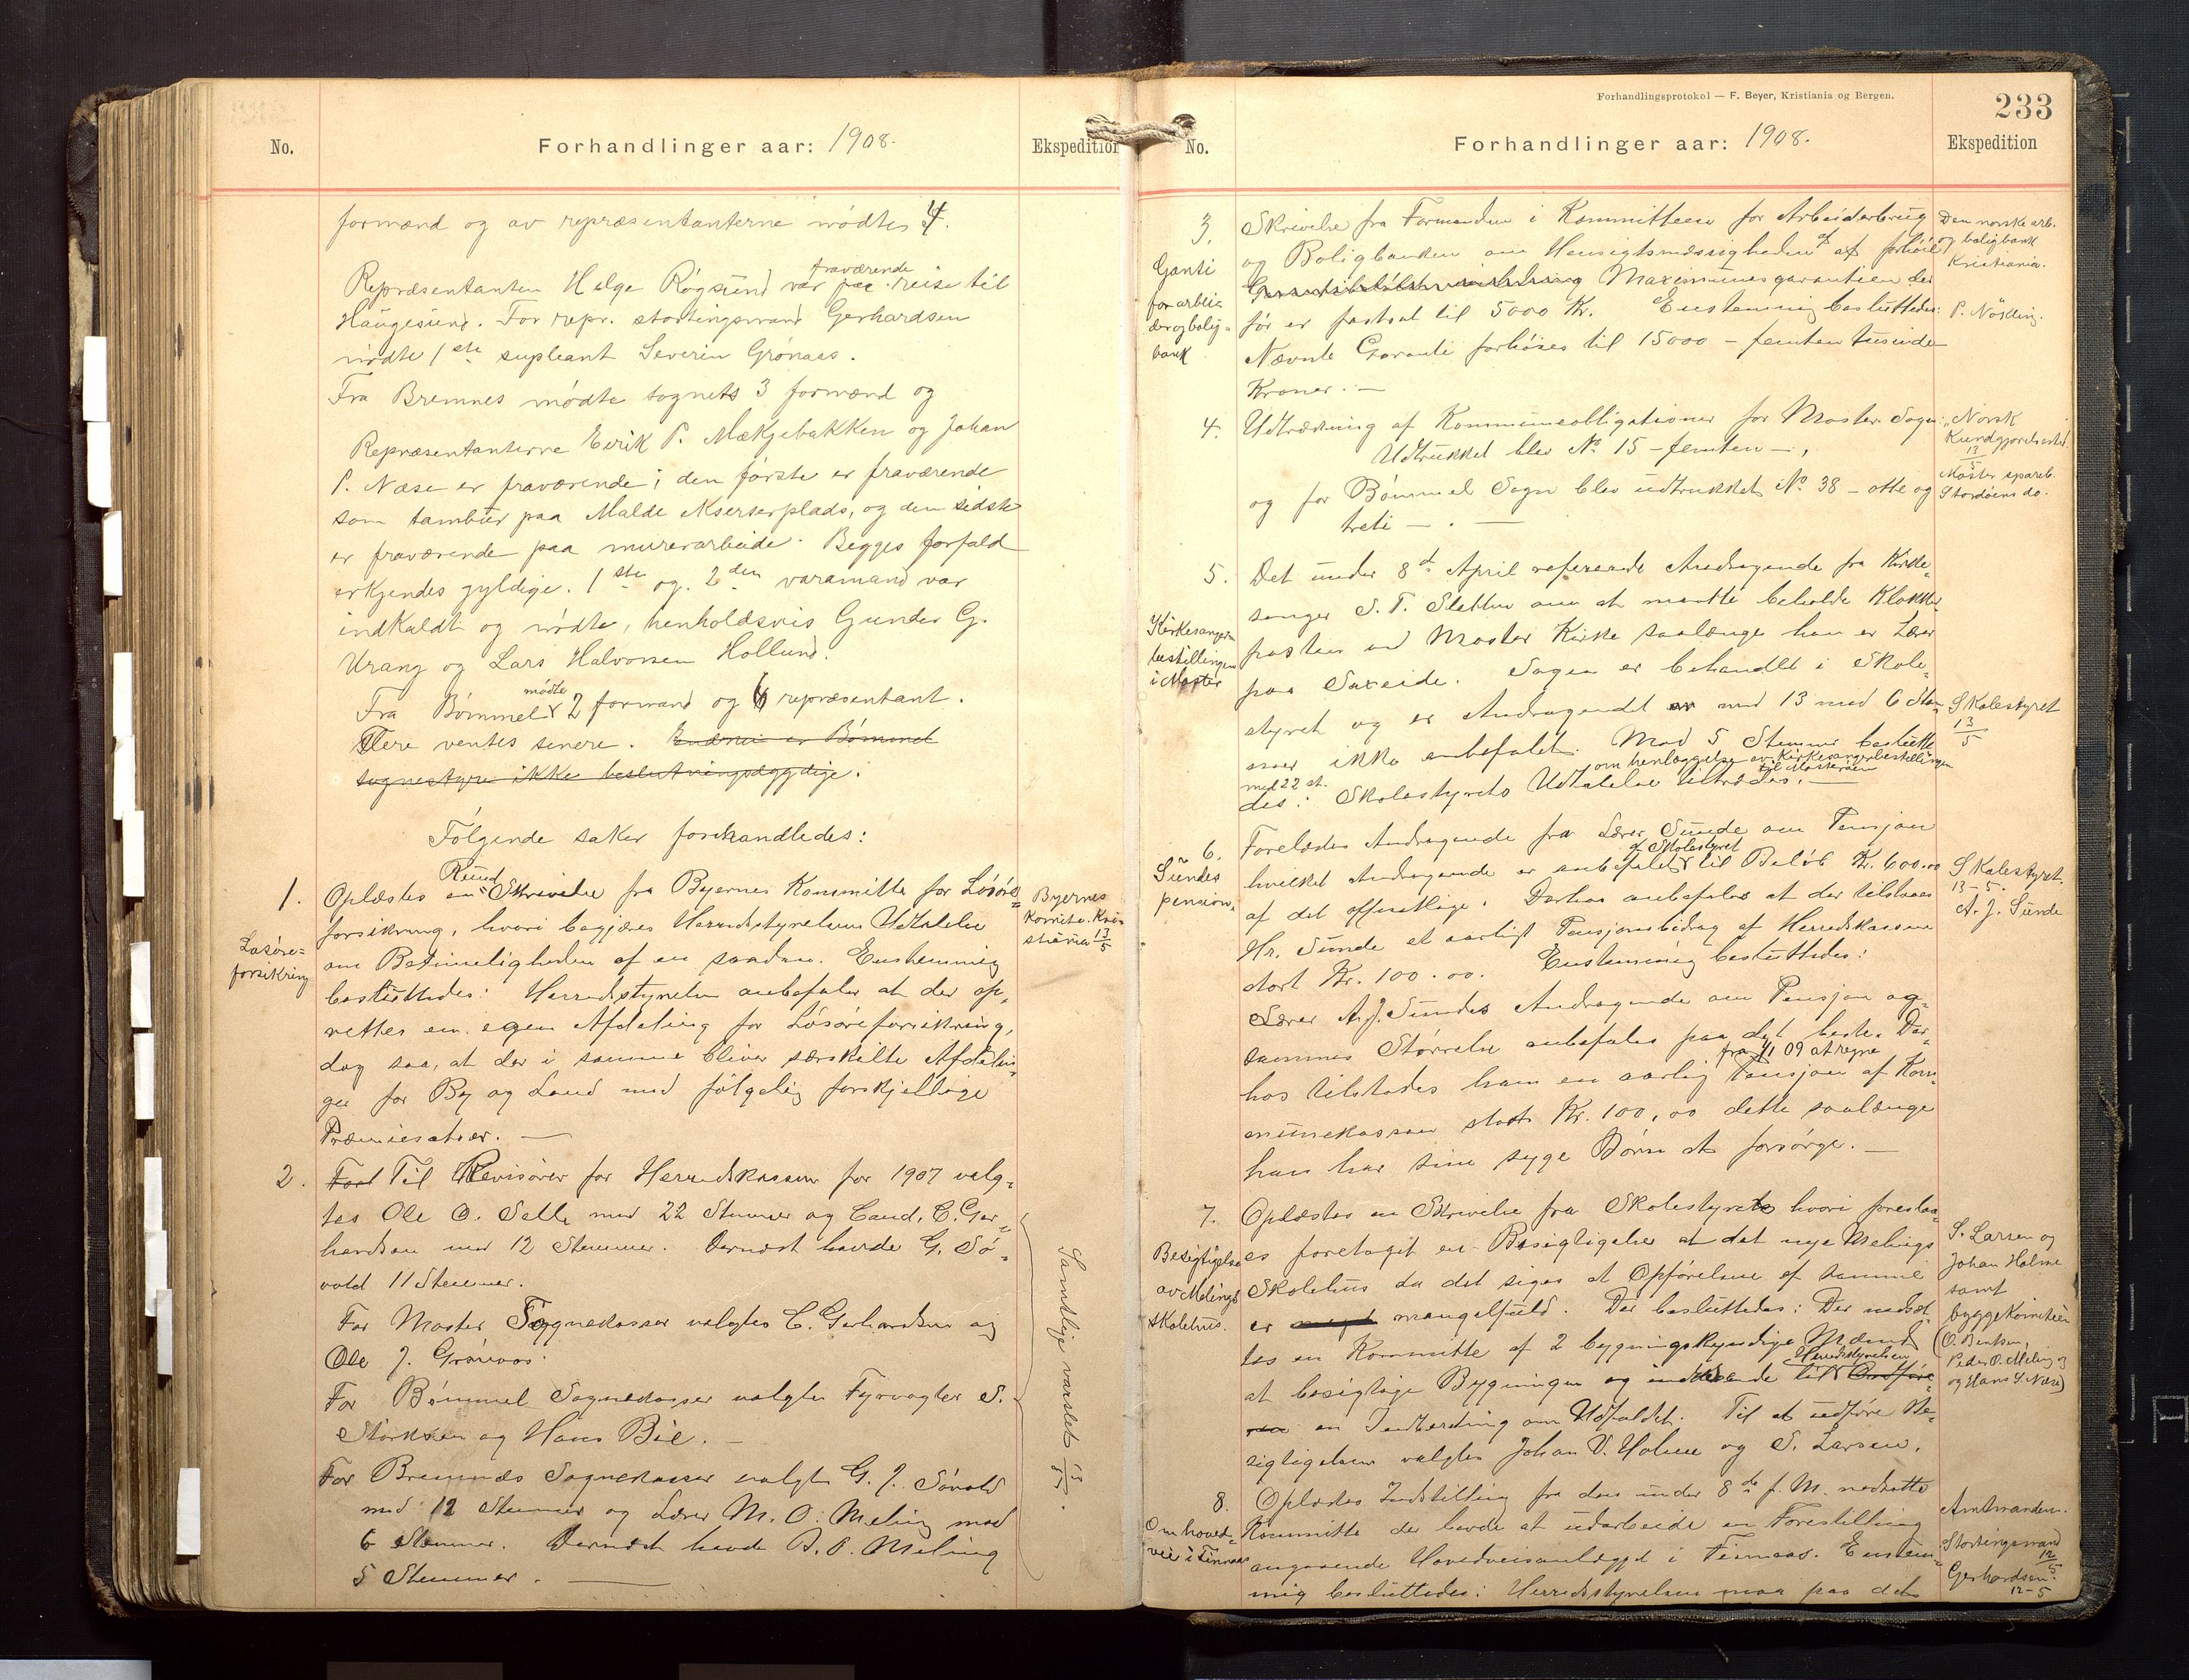 No.
Forhandlinger aar: 1908.
Ekspedition
formænd og av repræsentanterne mødte 4.
Repræsentanten Helge Røgsund var fraværende paa reise til
Haugesund. For repr. stortingsmand Gerhardsen
mødte 1ste supleant Severin Grønaas.
Fra Bremnes mødte sognets 3 formænd og
Repræsentanterne Eerik P. Mækjebakken og Johan
P. Næse er fraværende; den første er fraværende
som tambur paa Malde Ekserserplads, og den sidste
er fraværende paa murerarbeide. Begges forfald
erkjendes gyldige. 1ste og 2den varamand var
indkaldt og mødte, henholdsvis Gunder G.
Urang og Lars Halvorsen Hollund.
Fra Bømmel mødte 2 formænd og 6 repræsentant.
Flere ventes senere. Endnu er Bømmel
sognestyre ikke beslutningsdygdige.
Følgende saker forehandledes:
1.
Løsøre=
forsikring
Oplæstes en Rund Skrivelse fra Byernes Kommitte for Løsøre=
forsikring, hvori begjæres Herredstyrelsens Udtalelse
om Betimeligheden af en saadan. Enstemmig
besluttedes: Herredstyrelsen anbefaler at der op=
rettes en egen Afdeling for Løsøreforsikring,
dog saa, at der i samme bliver særskilte Afdelin=
ger for By og Land med følgelig forskjellige
Præmiesatser. —
Byernes
Komite. Kris
tiania 13/5
2.
Fort Til Revisorer for Herredskassen for 1907 valg=
tes Ole O. Selle med 22 Stemmer og Cand. C. Ger=
hardsen med 12 Stemmer. Dernæst havde G. Sø=
vold 11 Stemmer.
For Moster Sognekasser valgtes C. Gerhardsen og
Ole J. Grønaas.
For Bømmel Sognekasser valgtes Fyrvogter S.
Størksen og Hans Bie. —
For Bremnes Sognekasser valgtes G. J. Søvold
med 12 Stemmer og Lærer M. O. Meling med
6 Stemmer. Dernæst havde D. P. Meling
5 Stemmer. —
Samtlige varslet 13/5.
Forhandlingsprotokol — F. Beyer, Kristiania og Bergen.
233
No.
Forhandlinger aar: 1908.
Ekspedition
3.
Ganti
for arbei=
der og bolig=
bank
Skrivelse fra Formanden i Kommitteen for Arbeiderbrug
og Boligbanken om Hensigtsmæssigheden af at forhøie
Maximumsgarantien der
før er fastsat til 5000 Kr. Enstemmig besluttedes:
Nævnte Garanti forhøies til 15000 — femten tusinde
Kroner. —
Den norske arb.
og boligbank
Kristiania.
P. Nøkling.
4.
Udtrækning af Kommuneobligationer for Moster Sogn:
Udtrukket blev No 15 — femten —,
og for Bømmel Sogn blev udtrukket No 38 — otte og
treti — . —
"Norsk
Kundgjørelsestid.
13/5
Moster spareb.
Stordøens do.
5.
Kirkesanger=
bestillingen
i Moster
Det under 8de April refererede Andragende fra Kirke=
sanger S. T. Sletten om at maatte beholde Klokker
posten ved Moster Kirke saalænge han er Lærer
paa Sæxeide. Sagen er behandlet i Skole=
styret og er Andragendet med 13 mod 6 Stem=
mer ikke anbefalet. Mod 5 Stemmer beslutte=
om henlæggelse av Kirkesangerbestillingen
til Mosterøen
med 22 st.
des: Skolestyrets Udtalelse tiltrædes. —
Skolestyret
13/5
6.
Sundes
pension.
Forelædes Andragende fra Lærer Sunde om Pensjon
hvilket Andragende er anbefalet af Skolestyret til Beløb Kr. 600.00
af det offentlige. Derhos anbefales at der tilstaaes
Hr. Sunde et aarligt Pensjonsbidrag af Herredskassen
stort Kr. 100.00. Enstemmig besluttedes:
Lærer A. J. Sundes Andragende om Pensjon og
sammes Størrelse anbefales paa det beste. Der=
hos tilstedes ham en aarlig fra 1/1 09 at regne Pensjon af Kom=
munekassen stort Kr. 100,00 dette saalænge
han har sine syge Børn at forsørge. —
Skolestyret.
13-5.
A. J. Sunde
7.
Besigtigelse
av Mælings
skolehus.
Oplæstes en Skrivelse fra Skolestyrets hvori foreslaa=
es foretaget en Besigtigelse at det nye Melings
Skolehus da det siges at Opførelsen af samme
er mangelfuld. Der besluttedes: Der nedsæt=
tes en Kommitte af 2 bygningskyndige Mænd
at besigtige Bygningen og indsende til Herredstyrelsen
en Indberetning om Udfaldet. Til at udføre Be=
sigtigelsen valgtes Johan V. Holme og S. Larsen.
S. Larsen og
Johan Holme
samt
byggekomiteen
(O. Bentsen,
Peder O. Meling og
og Hans S. Næse)
8.
Om hoved=
vei i Finnaas
Oplæstes Indstilling fra den under 8de f. M. nedsatte
Kommitte der havde at udarbeide en Forestilling
angaaende Hovedveisanlægget i Finnaas. Enstem=
mig besluttedes: Herredstyrelsen maa paa det
Amtmanden.
Stortingsmand
12/5
Gerhardsen
12-5